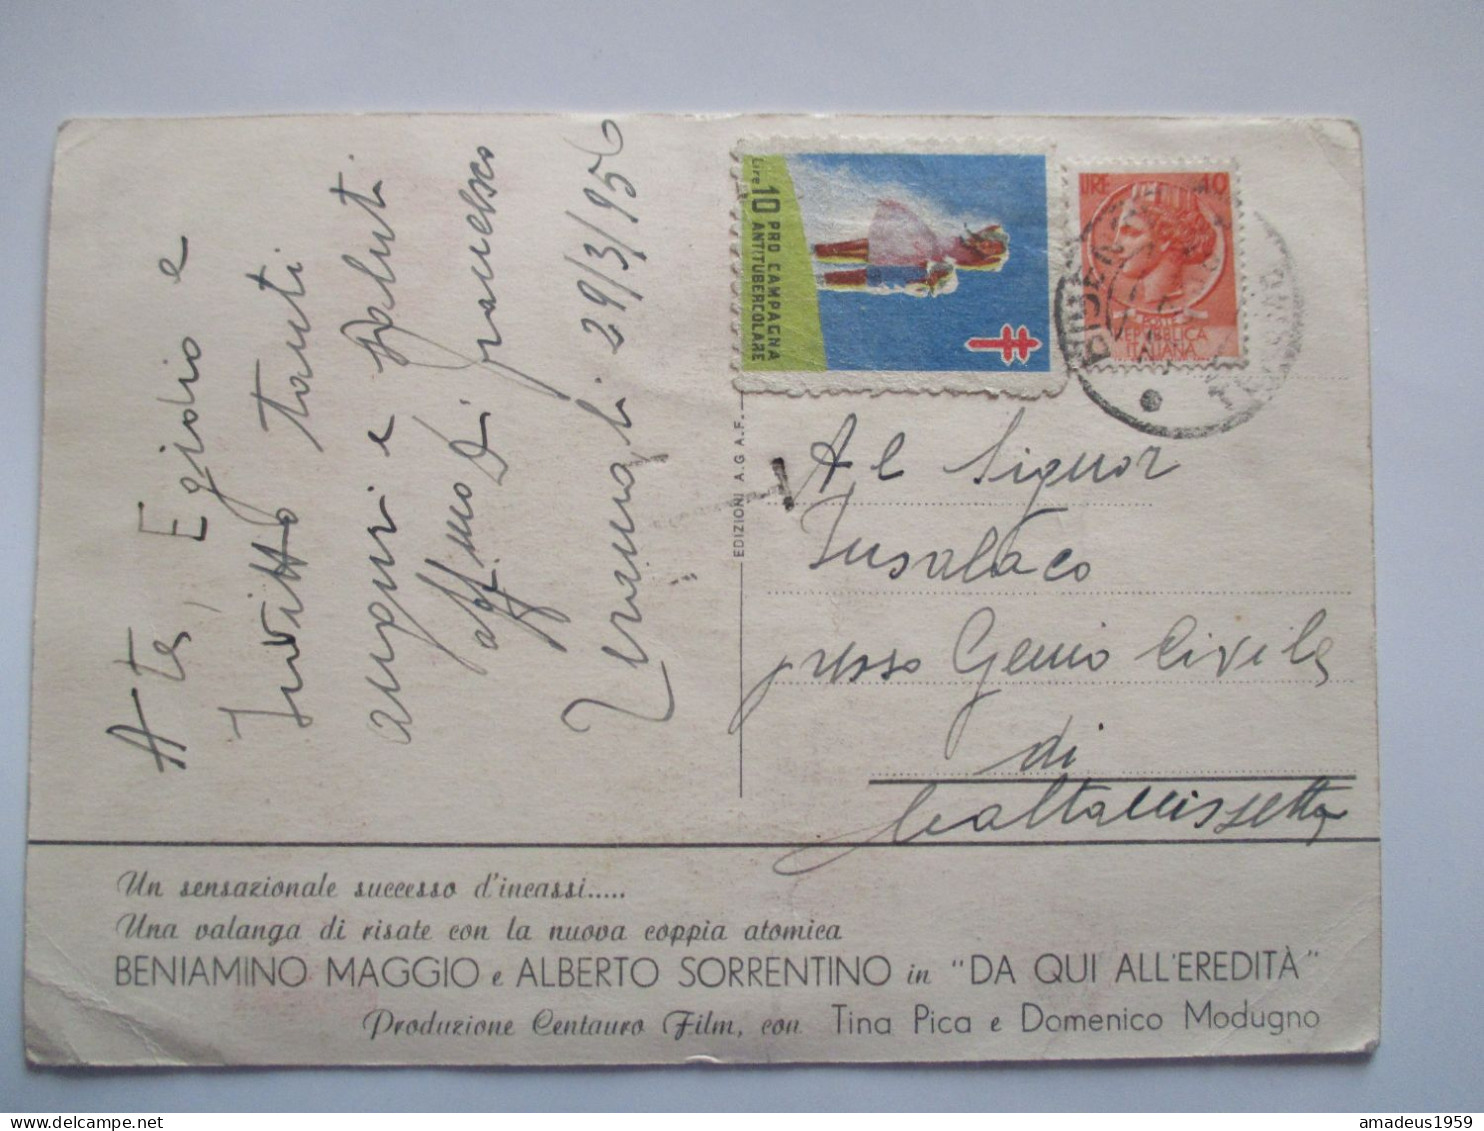 A te, Egidio e
Invitto tanti
auguri e saluti.
aff.mo
29/3/956
Lire 10 PRO CAMPAGNA
ANTITUBERCOLARE
LIRE 10
REPUBBLICA
ITALIANA
EDIZIONI A.G.A.F.
T
Al Signor
Insalaco
presso Genio Civile
di
Caltanissetta
Un sensazionale successo d'incassi.....
Una valanga di risate con la nuova coppia atomica
BENIAMINO MAGGIO e ALBERTO SORRENTINO in "DA QUI ALL'EREDITÀ"
Produzione Centauro Film, con Tina Pica e Domenico Modugno
amadeus1959